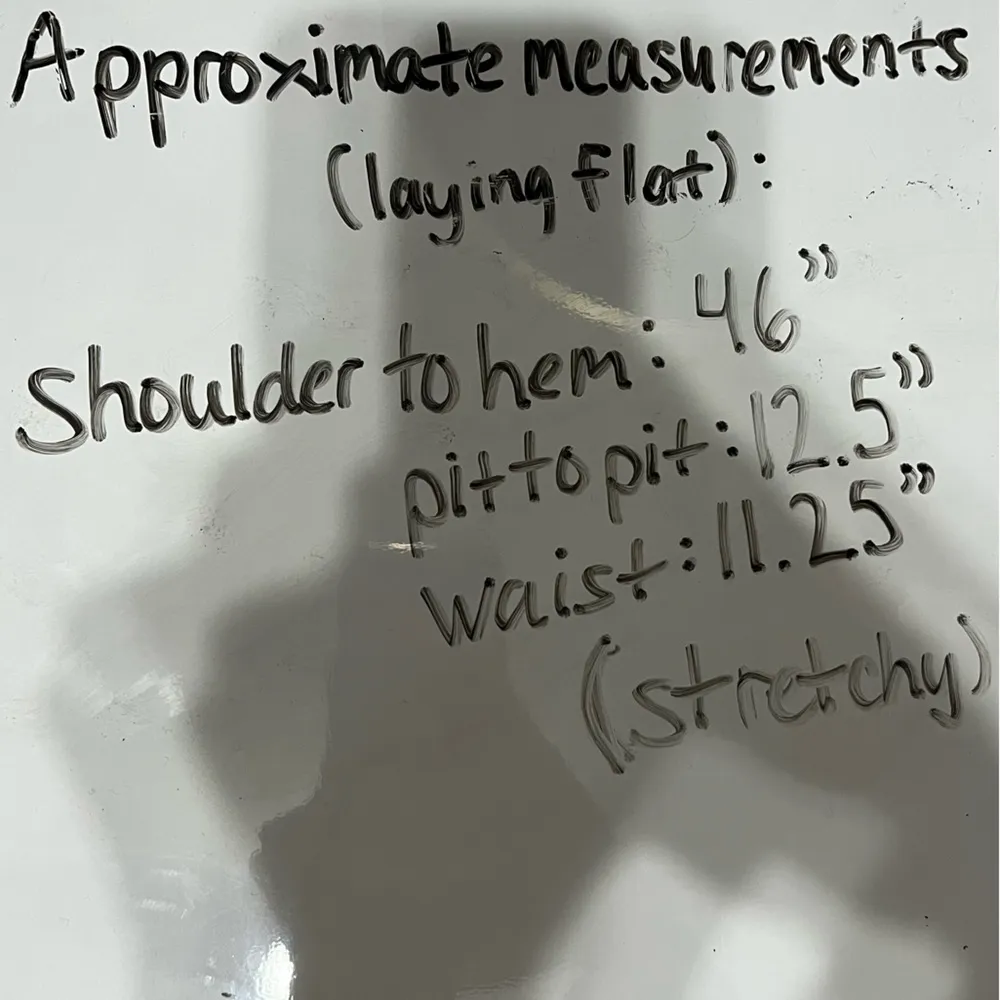 Approximate measurements
(laying flat):
Shoulder to hem: 46"
pit to pit: 12.5"
waist: 11.25"
(stretchy)